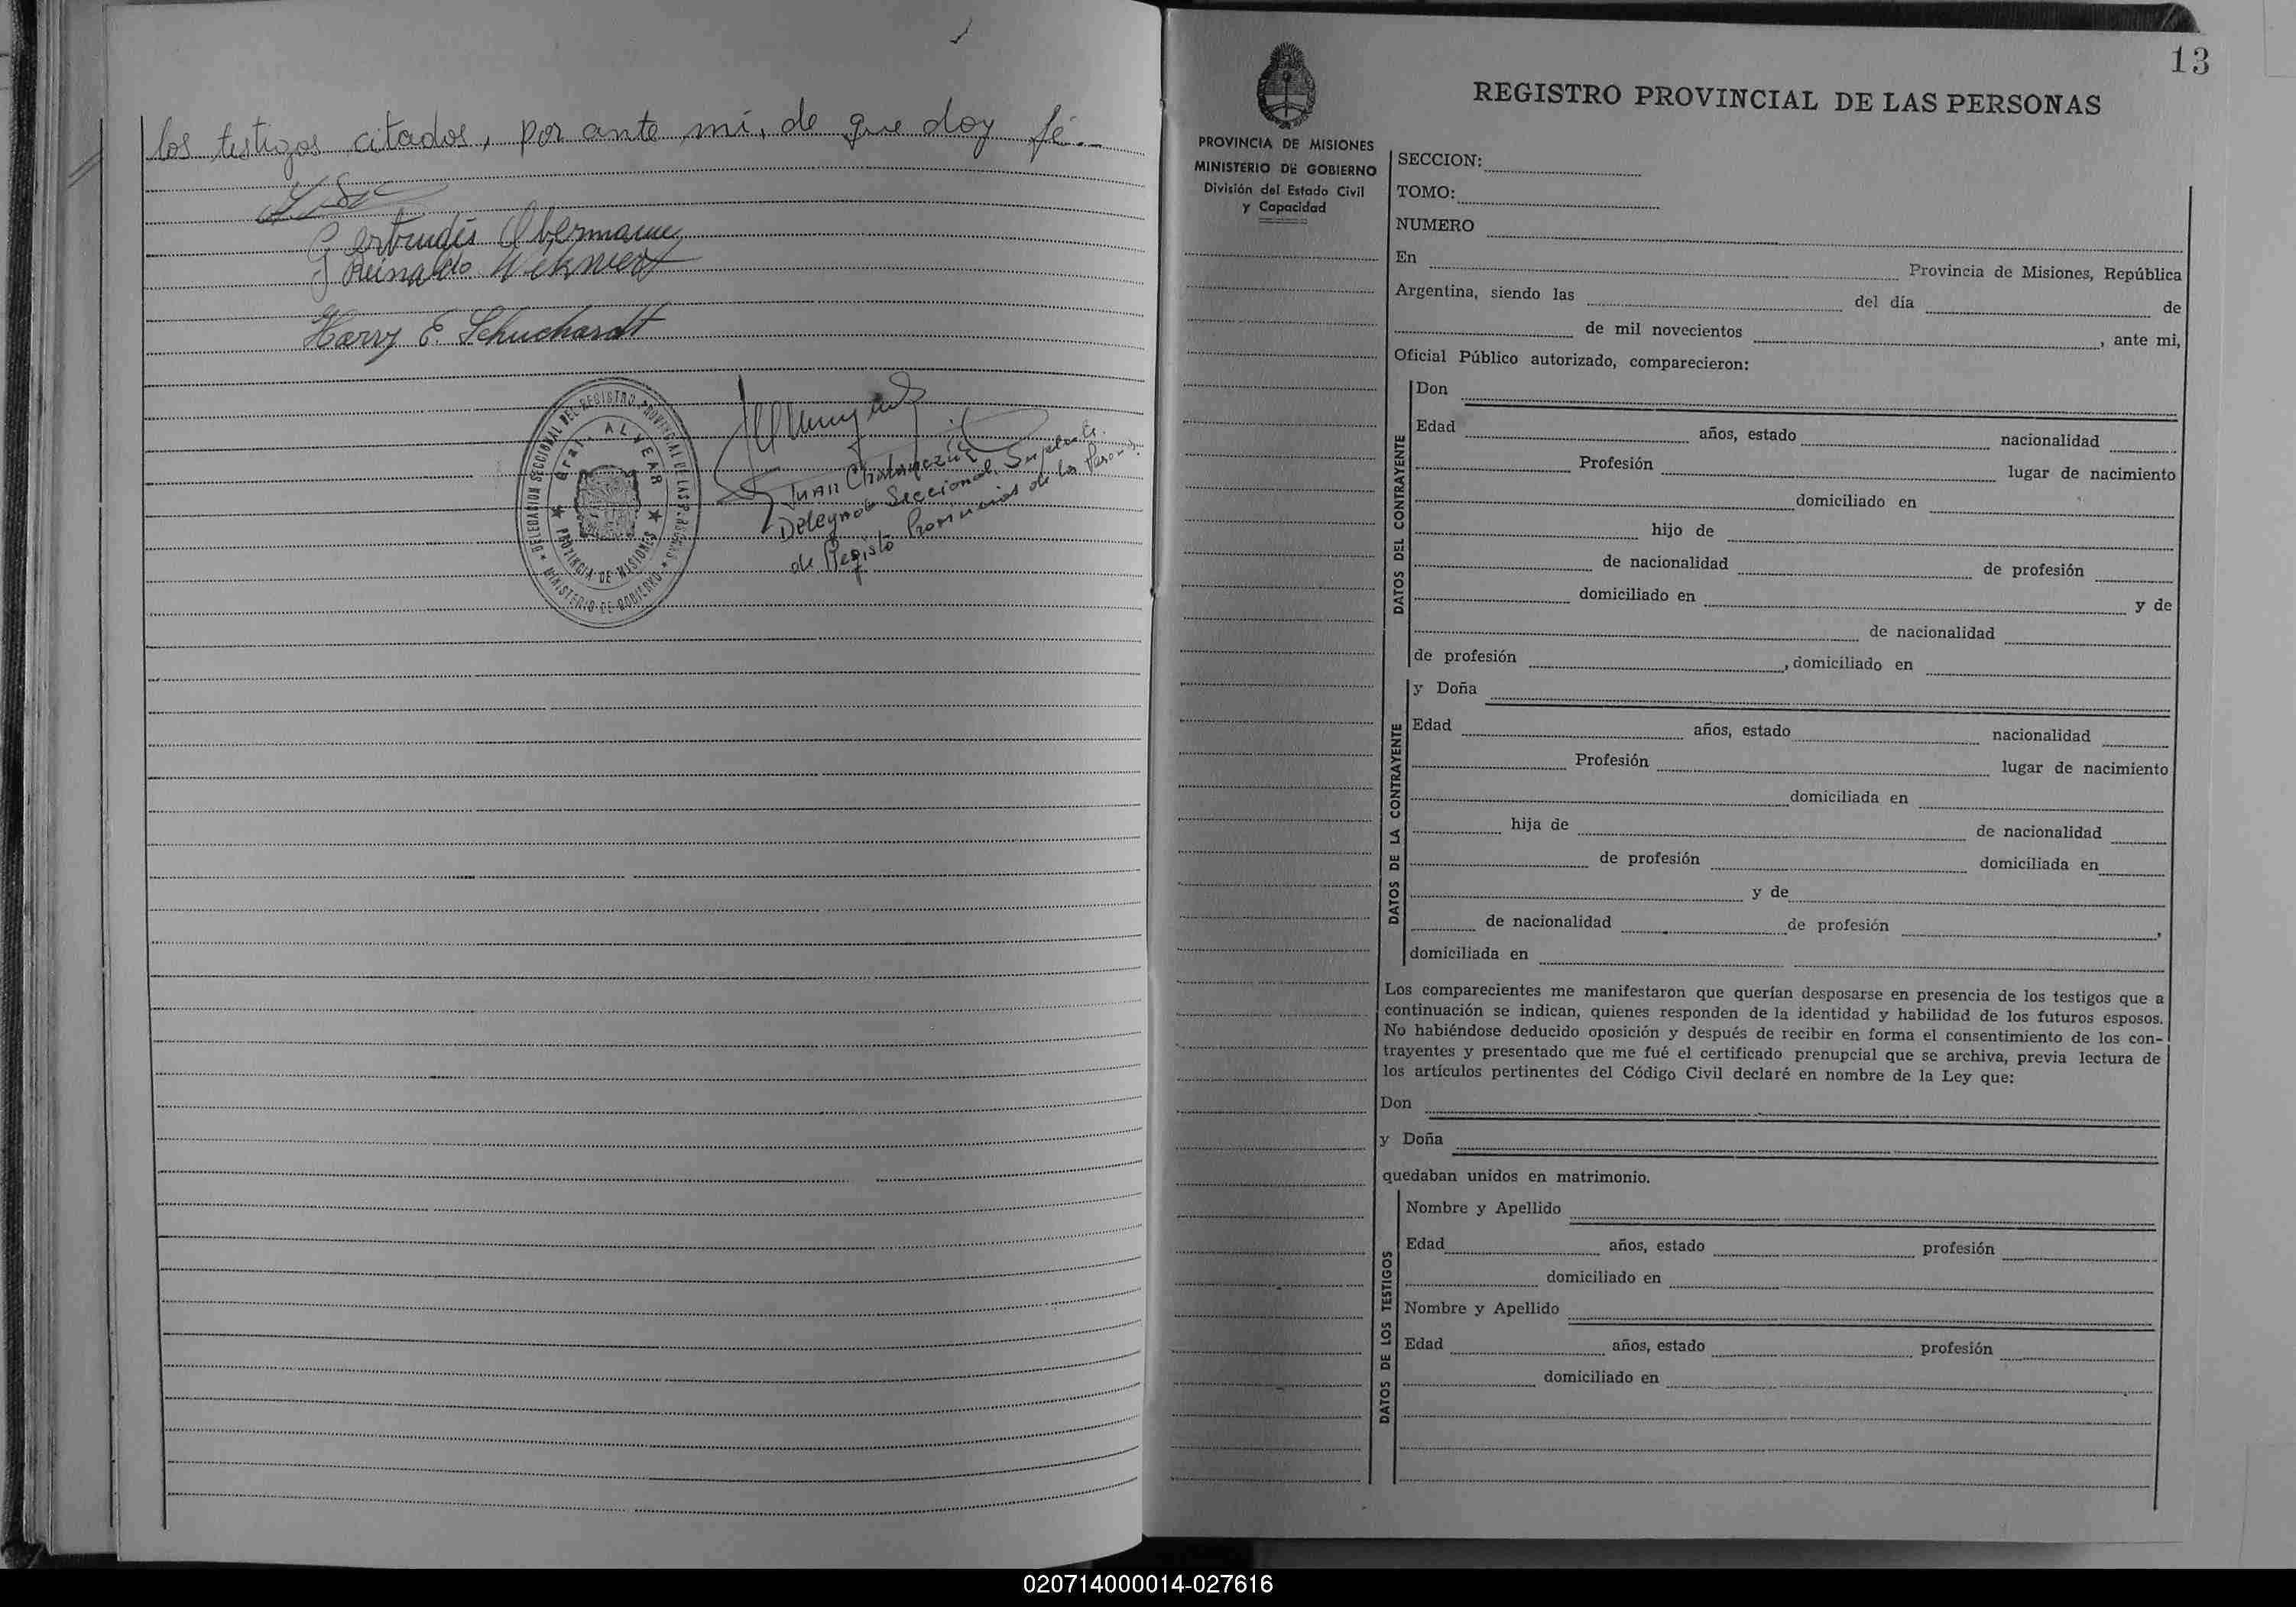 los testigos citados, por ante mí, de que doy fé.-
Gertrudis Obermann
Reinaldo
Harry E. Schuchardt
DELEGACION SECCIONAL DEL REGISTRO PROVINCIAL DE LAS PERSONAS
MINISTERIO DE GOBIERNO
Gral. ALVEAR
PROVINCIA DE MISIONES
Juan
Delegado Seccional Suplente
de Registo Provincial de las Personas
13
REGISTRO PROVINCIAL DE LAS PERSONAS
PROVINCIA DE MISIONES
MINISTERIO DE GOBIERNO
División del Estado Civil
y Capacidad
SECCION:
TOMO:
NUMERO
En Provincia de Misiones, República
Argentina, siendo las del día de
de mil novecientos , ante mi,
Oficial Público autorizado, comparecieron:
DATOS DEL CONTRAYENTE
Don
Edad años, estado nacionalidad
Profesión lugar de nacimiento
domiciliado en
hijo de
de nacionalidad de profesión
domiciliado en y de
de nacionalidad
de profesión , domiciliado en
DATOS DE LA CONTRAYENTE
y Doña
Edad años, estado nacionalidad
Profesión lugar de nacimiento
domiciliada en
hija de de nacionalidad
de profesión domiciliada en
y de
de nacionalidad de profesión ,
domiciliada en
Los comparecientes me manifestaron que querían desposarse en presencia de los testigos que a
continuación se indican, quienes responden de la identidad y habilidad de los futuros esposos.
No habiéndose deducido oposición y después de recibir en forma el consentimiento de los con-
trayentes y presentado que me fué el certificado prenupcial que se archiva, previa lectura de
los artículos pertinentes del Código Civil declaré en nombre de la Ley que:
Don
y Doña
quedaban unidos en matrimonio.
DATOS DE LOS TESTIGOS
Nombre y Apellido
Edad años, estado profesión
domiciliado en
Nombre y Apellido
Edad años, estado profesión
domiciliado en
020714000014-027616